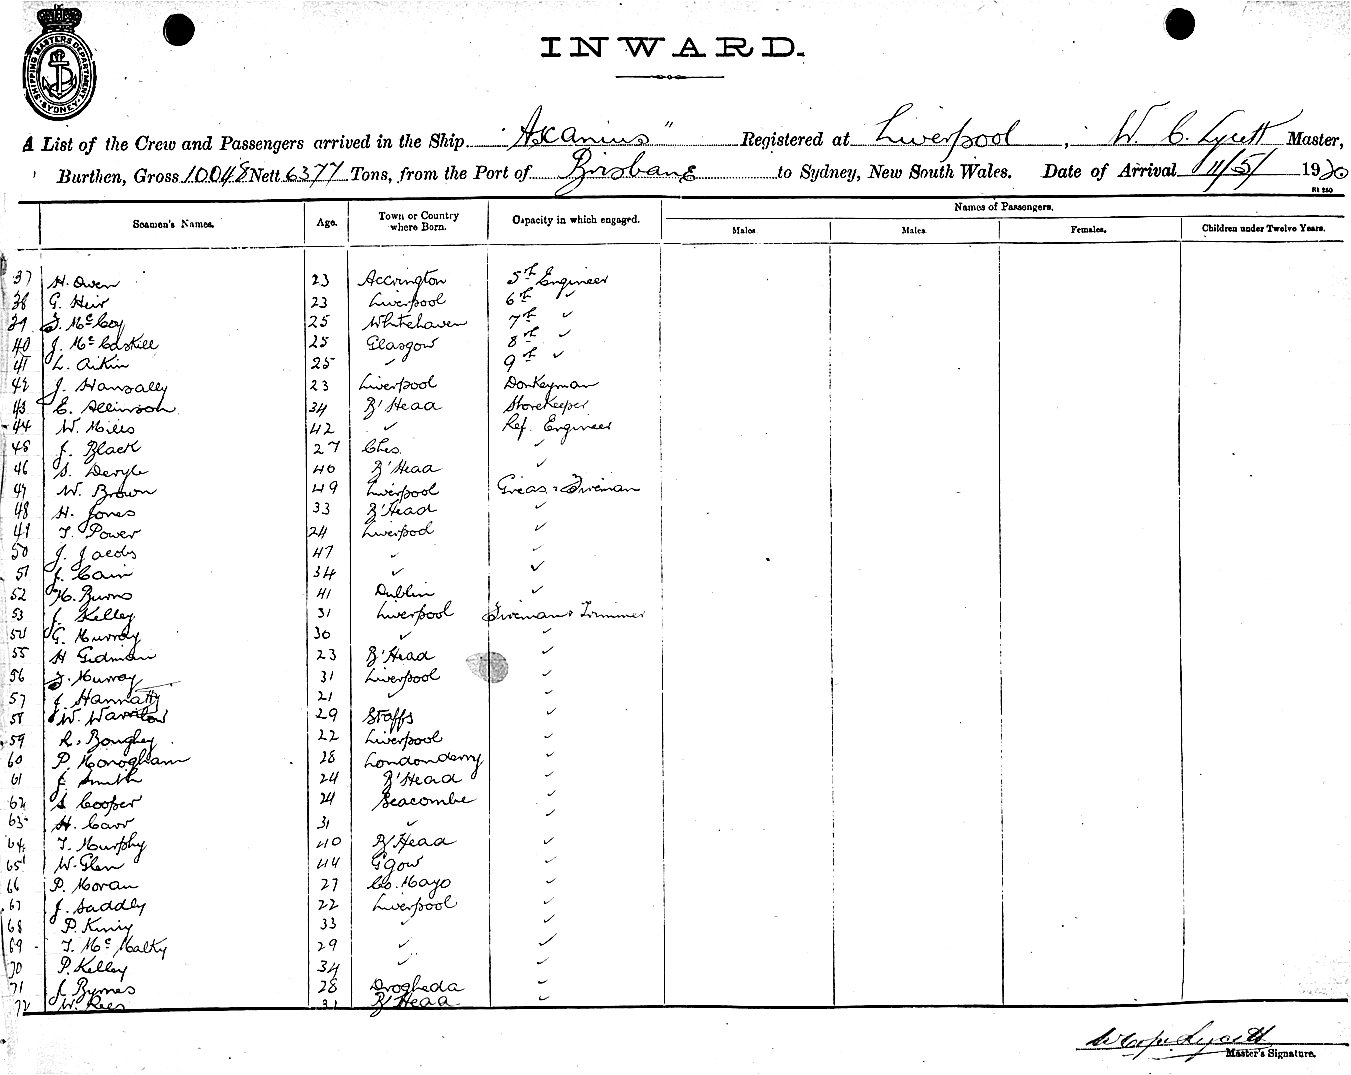 SHIPPING MASTERS DEPARTMENT SYDNEY
INWARD.
A List of the Crew and Passengers arrived in the Ship "Ascanius" Registered at Liverpool, W. C. Lycett Master,
Burthen, Gross 10048 Nett 6377 Tons, from the Port of Brisbane to Sydney, New South Wales. Date of Arrival 11/5/ 1920
Seamen's Names. Age. Town or Country where Born. Capacity in which engaged. Names of Passengers.
Males Males. Females. Children under Twelve Years.
37 H. Owen 23 Accrington 5th Engineer
38 G. Heir 23 Liverpool 6th "
39 J. McCoy 25 Whitehaven 7th "
40 J. McCaskill 25 Glasgow 8th "
41 L. Aikin 25 " 9th "
42 J. Hansally 23 Liverpool Donkeyman
43 E. Allinson 34 B'Head Storekeeper
44 W. Miles 42 " Ref. Engineer
45 J. Black 27 Ches. "
46 S. 40 B'Head "
47 W. Brown 49 Liverpool Greas & Fireman
48 H. Jones 33 B'Head "
49 T. Power 24 Liverpool "
50 J. Jacobs 47 " "
51 J. Cain 34 " "
52 H. Burns 41 Dublin "
53 J. Kelley 31 Liverpool Fireman & Trimmer
54 G. Murray 30 " "
55 H Gidman 23 B'Head "
56 J. Murray 31 Liverpool "
57 J. Hannatty 21 " "
58 W. 29 Staffs "
59 R. Boughey 22 Liverpool "
60 P. Monogham 28 Londonderry "
61 J. Smith 24 B'Head "
62 S Cooper 24 Seacombe "
63 H. Carr 31 " "
64 T. Murphy 40 B'Head "
65 W. Glen 44 G'gow "
66 P. Moran 27 Co. Mayo "
67 J. Saddly 22 Liverpool "
68 P. 33 " "
69 T. McNalty 29 " "
70 P. Kelley 34 " "
71 J. Byrnes 28 Drogheda "
72 W. Rees 31 B'Head "
Lycett
Master's Signature.